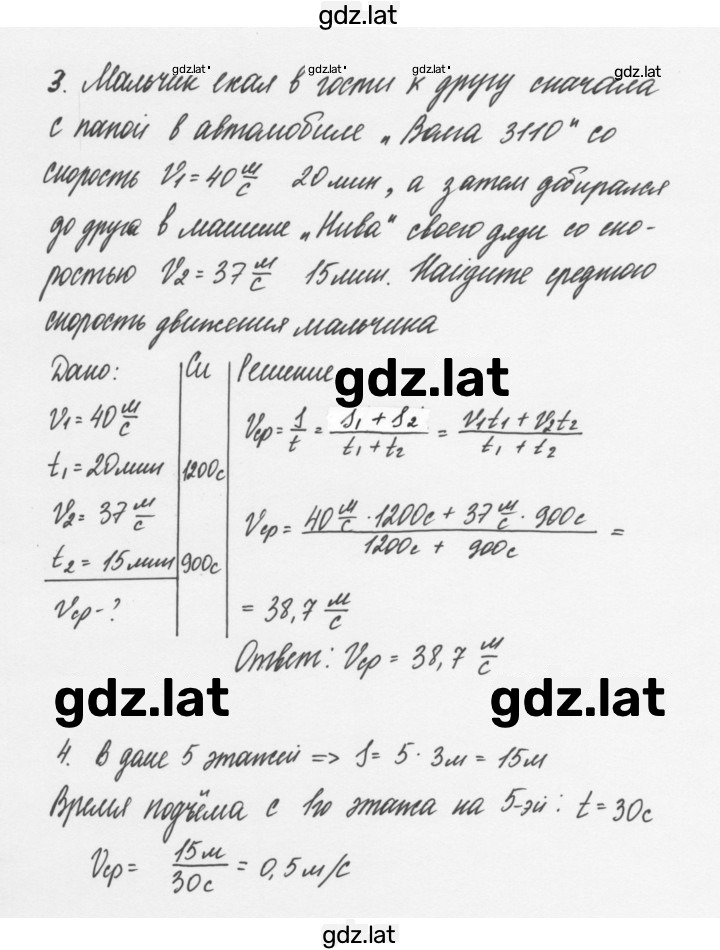 gdz.lat
gdz.lat gdz.lat gdz.lat
3. Мальчик ехал в гости к другу сначала
с папой в автомобиле „Волга 3110" со
скорость V1 = 40 м/с 20 мин, а затем добирался
до друга в машине „Нива" своего дяди со ско-
ростью V2 = 37 м/с 15 мин. Найдите среднюю
скорость движения мальчика
Дано: Си Решение
gdz.lat
V1 = 40 м/с
Vср = S/t = (S1 + S2)/(t1 + t2) = (V1t1 + V2t2)/(t1 + t2)
t1 = 20 мин 1200с
V2 = 37 м/с
Vср = (40 м/с · 1200с + 37 м/с · 900с)/(1200с + 900с) =
t2 = 15 мин 900с
Vср - ?
= 38,7 м/с
Ответ: Vср = 38,7 м/с
gdz.lat gdz.lat
4. в доме 5 этажей => S = 5 · 3м = 15м
Время подъёма с 1го этажа на 5-эй: t = 30с
Vср = 15м/30с = 0,5 м/с
gdz.lat